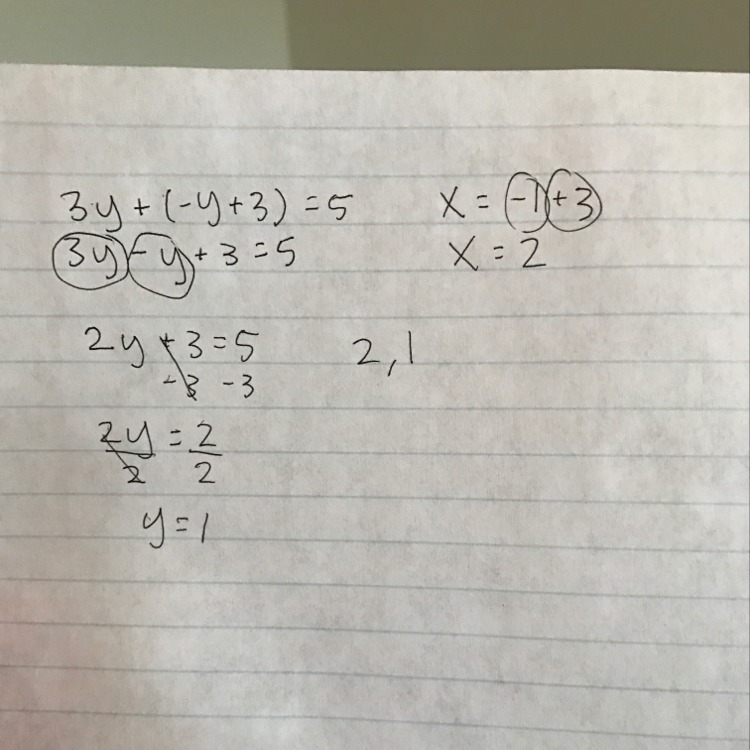 3y + (-y + 3) = 5
3y - y + 3 = 5
2y + 3 = 5
-3 -3
2y = 2
2 2
y = 1
x = -1 + 3
x = 2
2, 1